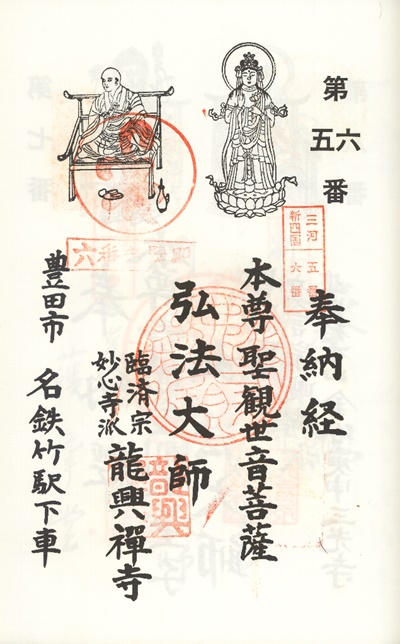 第
五六
番
三河
新四国
五番
六番
奉納経
本尊聖観世音菩薩
弘法大師
臨済宗
妙心寺派
龍興禪寺
龍興
豊田市 名鉄竹駅下車